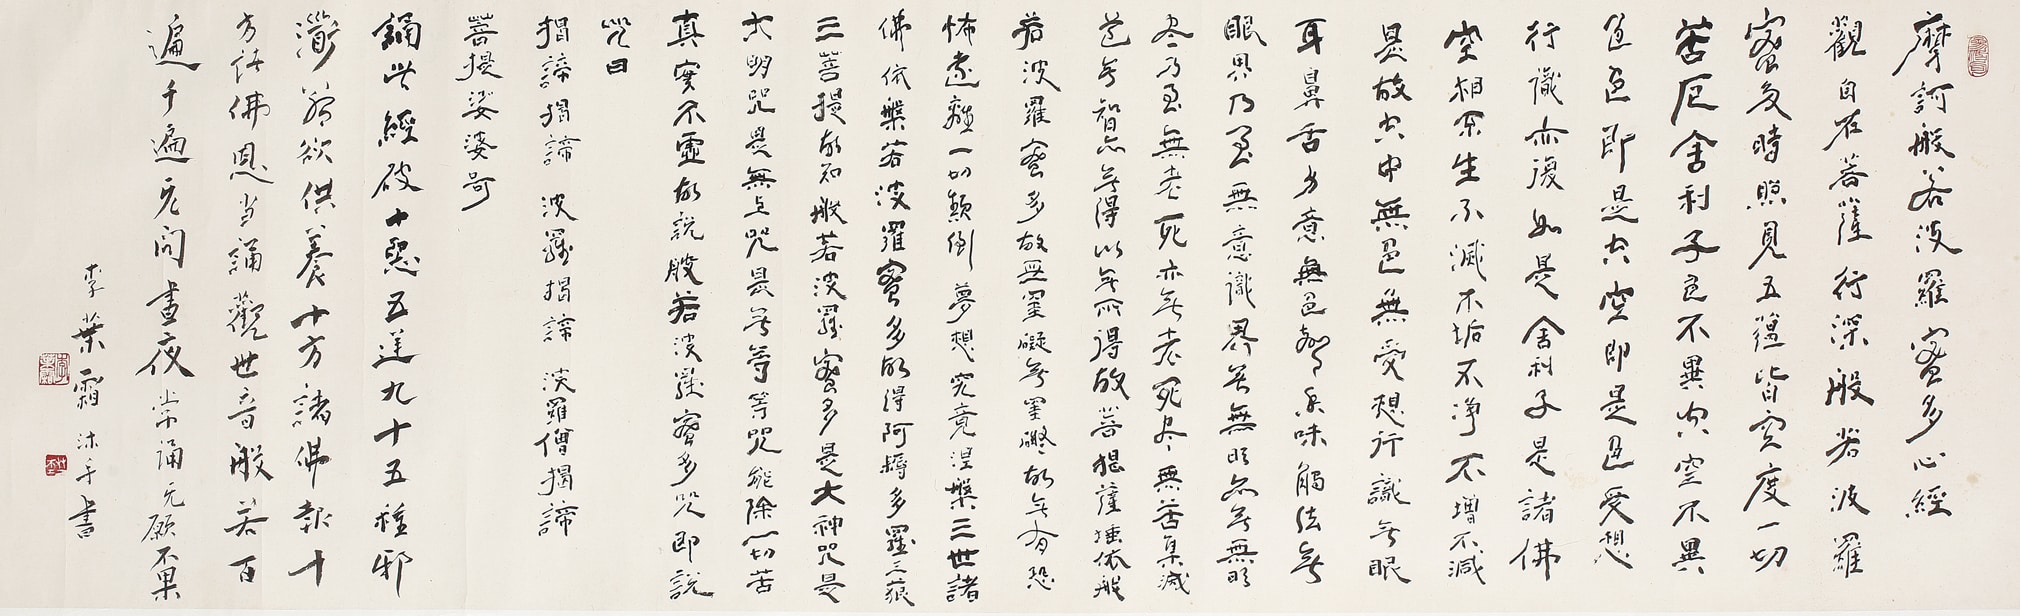 摩訶般若波羅蜜多心經
觀自在菩薩行深般若波羅
蜜多時照見五蘊皆空度一切
苦厄舍利子色不異空空不異
色色即是空空即是色受想
行識亦復如是舍利子是諸佛
空相不生不滅不垢不淨不增不減
是故空中無色無受想行識無眼
耳鼻舌身意無色聲香味觸法無
眼界乃至無意識界無無明亦無無明
尽乃至無老死亦無老死尽無苦集滅
道無智亦無得以無所得故菩提薩埵依般
若波羅蜜多故無罣礙無罣礙故無有恐
怖遠離一切顛倒夢想究竟涅槃三世諸
佛依槃若波羅蜜多故得阿耨多羅三藐
三菩提故知般若波羅蜜多是大神咒是
大明咒是無上咒是無等等咒能除一切苦
真實不虛故說般若波羅蜜多咒即說
咒曰
揭諦揭諦 波羅揭諦 波羅僧揭諦
菩提娑婆訶
誦此經破十惡五逆九十五種邪
道若欲供養十方諸佛報十
方諸佛恩当誦觀世音般若百
遍千遍无間晝夜常誦无願不果
李葉霜沐手書